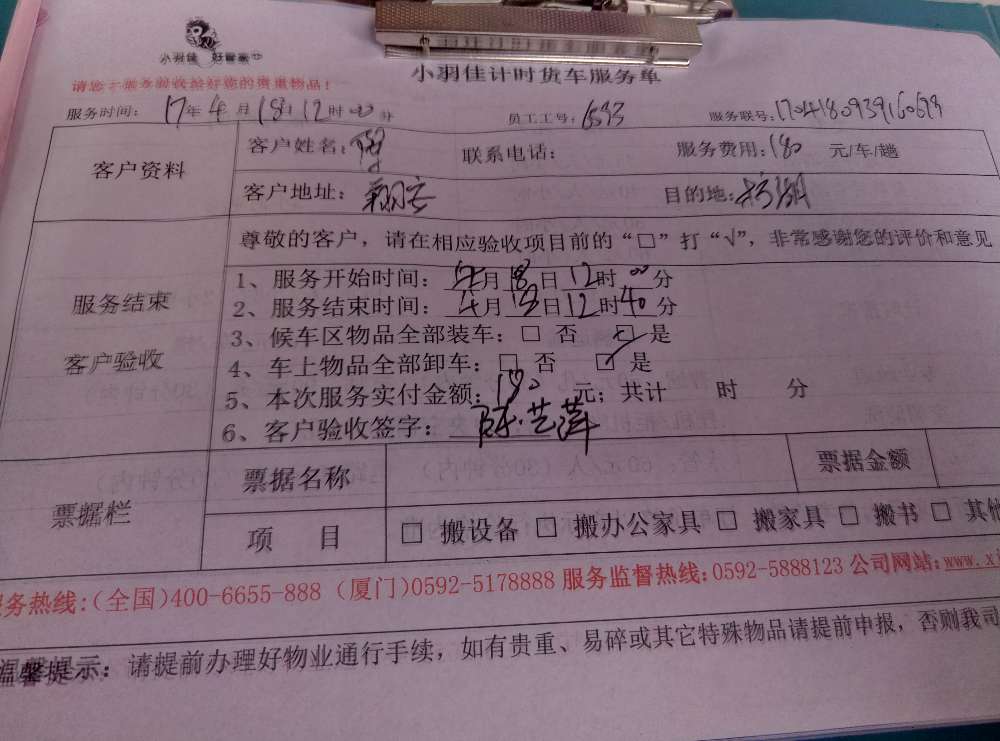 小羽佳 好管家
小羽佳计时货车服务单
请您于服务前收拾好您的贵重物品!
服务时间: 17年4月18日12时00分 员工工号: 1533 服务联号: 1704180939160673
客户资料
客户姓名: 联系电话: 服务费用: 180 元/车/趟
客户地址: 翔安 目的地: 杏湖
尊敬的客户，请在相应验收项目前的“□”打“√”，非常感谢您的评价和意见
服务结束
客户验收
1、服务开始时间: 4月18日12时00分
2、服务结束时间: 4月18日12时40分
3、候车区物品全部装车: □ 否 ☑ 是
4、车上物品全部卸车: □ 否 ☑ 是
5、本次服务实付金额: 180 元; 共计 时 分
6、客户验收签字: 陈艺萍
票据栏
票据名称 票据金额
项 目 □ 搬设备 □ 搬办公家具 □ 搬家具 □ 搬书 □ 其他
务热线:(全国)400-6655-888 (厦门)0592-5178888 服务监督热线:0592-5888123 公司网站:www.x
温馨提示: 请提前办理好物业通行手续，如有贵重、易碎或其它特殊物品请提前申报，否则我司